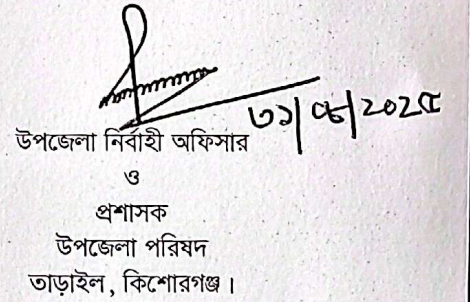 ৩১/০৮/২০২৫
উপজেলা নির্বাহী অফিসার
ও
প্রশাসক
উপজেলা পরিষদ
তাড়াইল, কিশোরগঞ্জ।